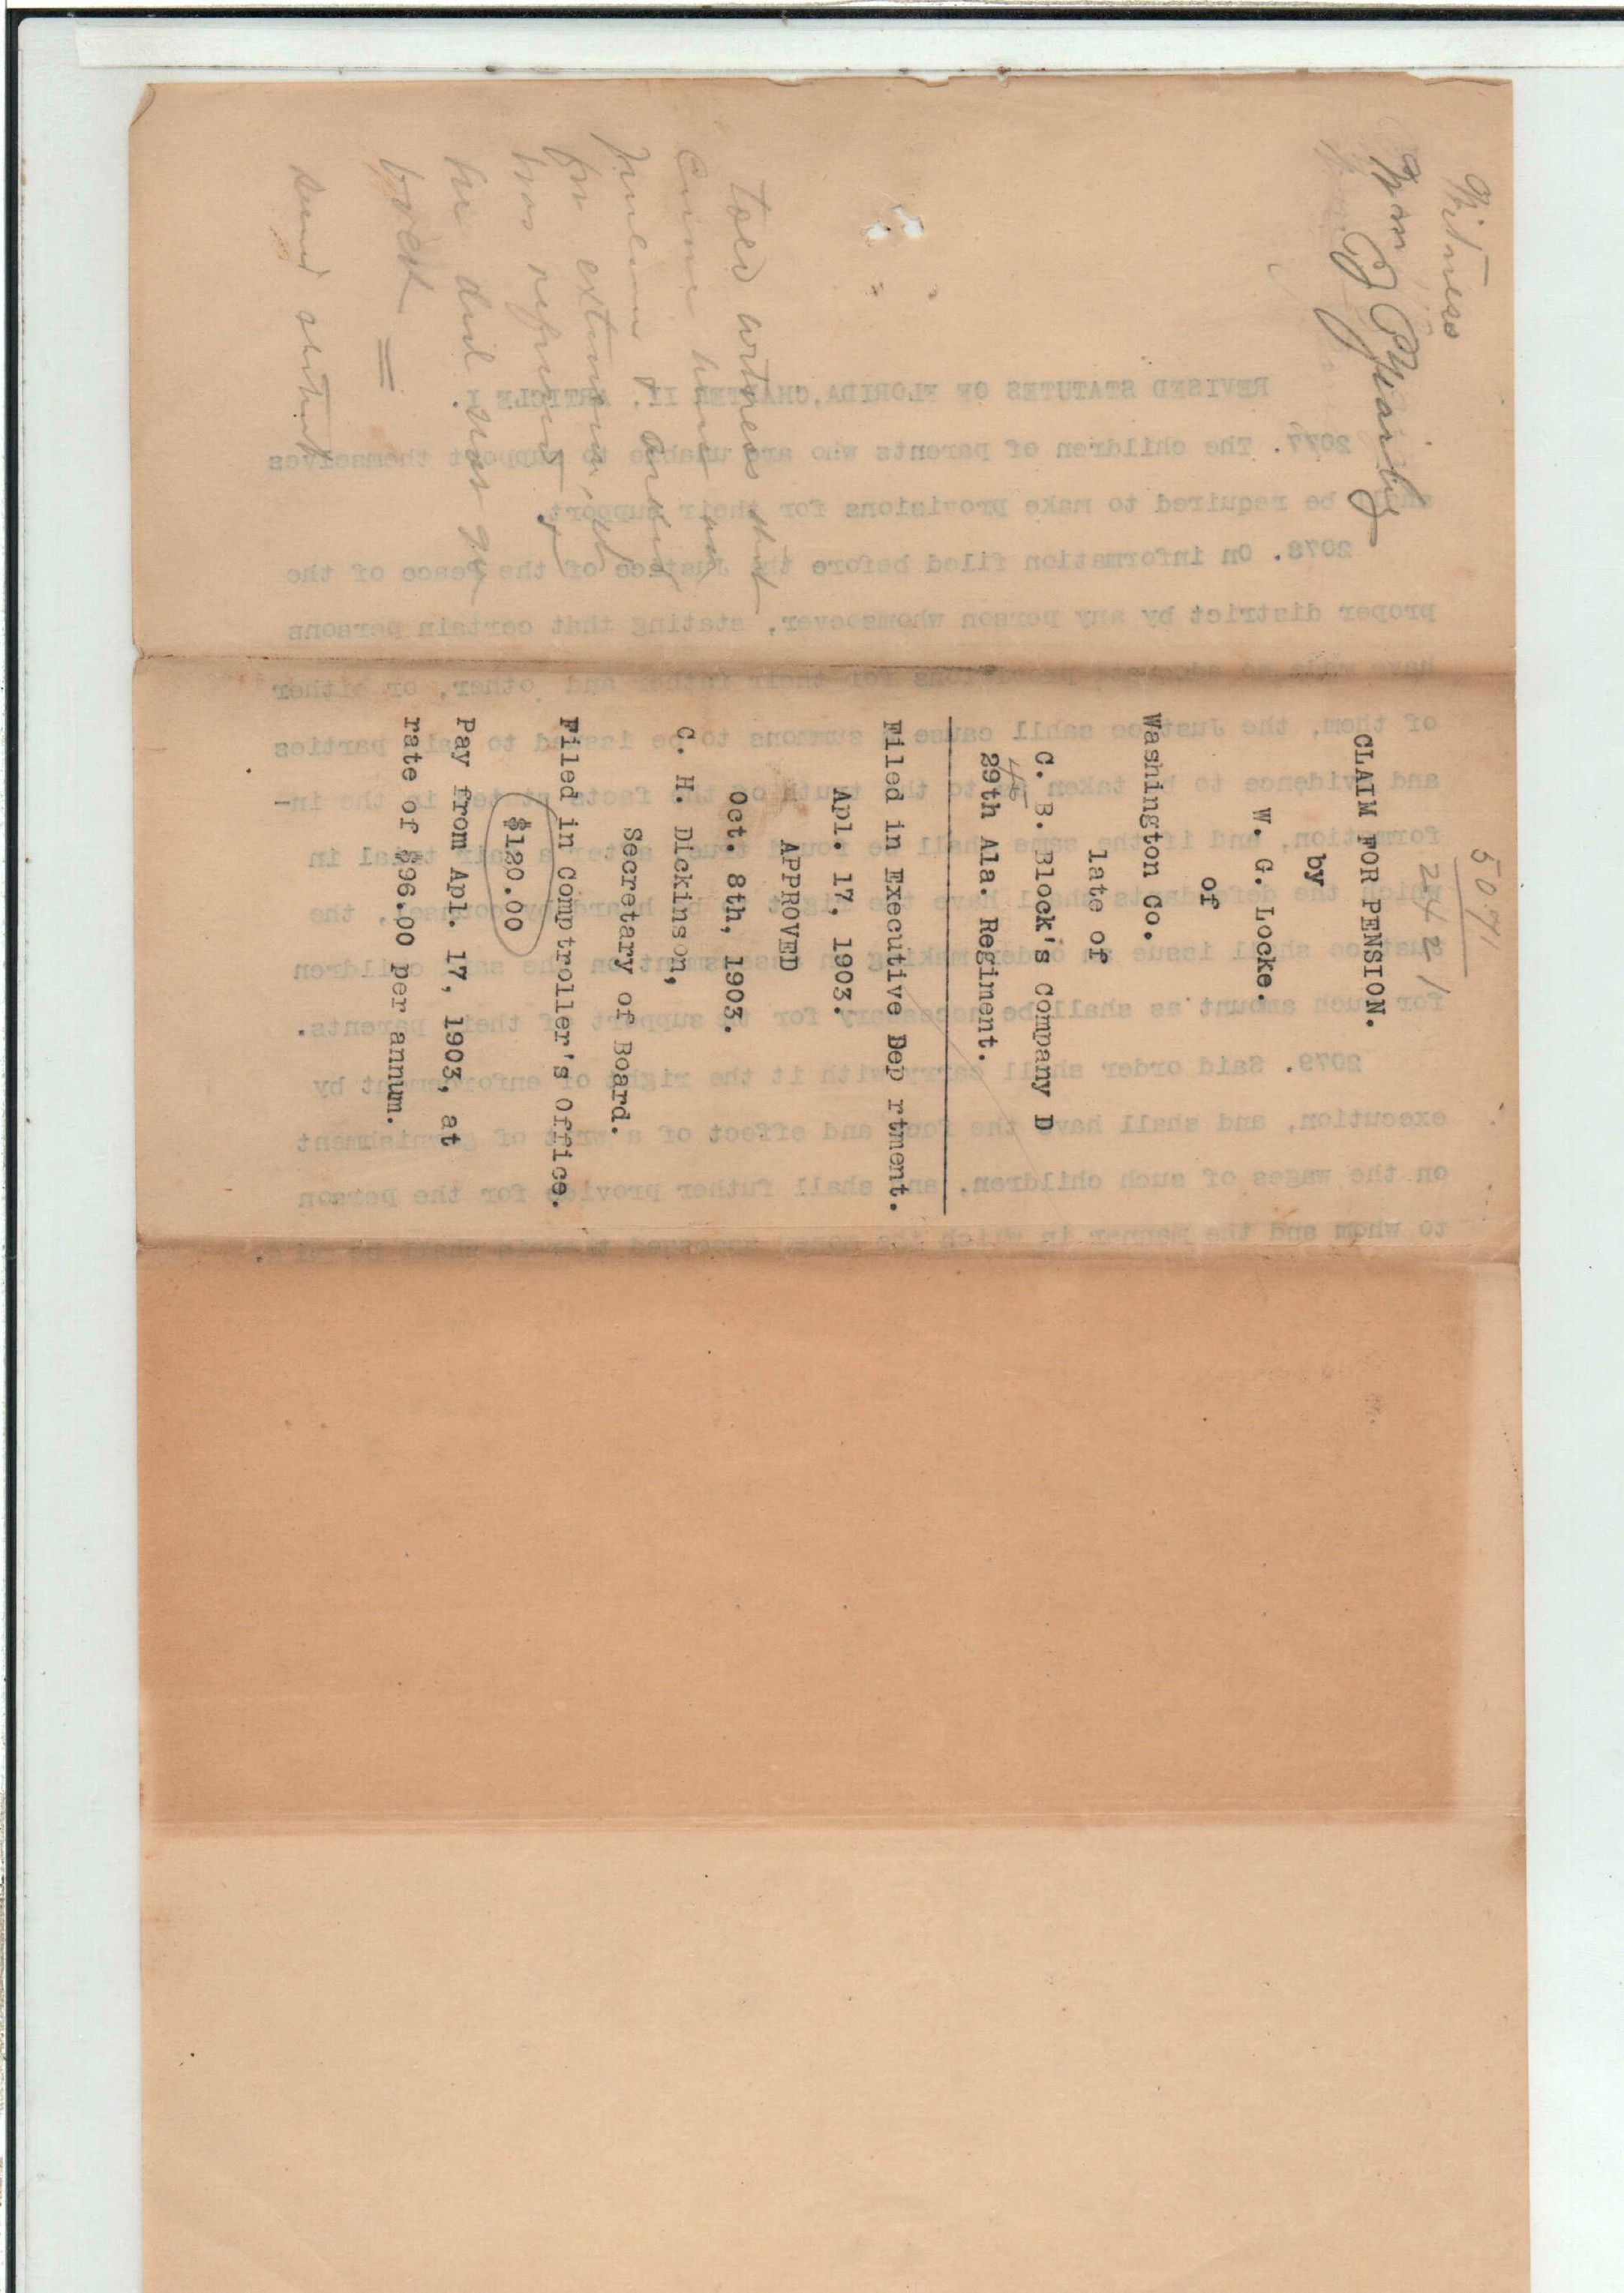 5071
2421
CLAIM FOR PENSION.
by
W. G. Locke.
of
Washington Co.
late of
C. B. Block's Company D
29th Ala. Regiment.
Filed in Executive Dep rtment.
Apl. 17, 1903.
APPROVED
Oct. 8th, 1903.
C. H. Dickinson,
Secretary of Board.
Filed in Comptroller's Office.
$120.00
Pay from Apl. 17, 1903, at
rate of $96.00 per annum.
Witness
told witness that
for
was refused
he did not
REVISED STATUTES OF FLORIDA, CHAPTER II. ARTICLE I.
2077. The children of parents who are unable to support themselves
be required to make provisions for their support.
2078. On information filed before the Justice of the Peace of the
proper district by any person whomsoever, stating that certain persons
have made no adequate provisions for their father and other, or either
of them, the Justice sahll cause summons to be issued to parties
and evidence to be taken to the truth of the facts stated in the in-
formation, and if the same shall be found true after a fair trial in
which the defendants shall have the right to be heard by counsel, the
Justice shall issue an order making an assessment on the said children
for such amount as shall be necessary for the support of their parents.
2079. Said order shall carry with it the right of enforcement by
execution, and shall have the force and effect of a writ of garnishment
on the wages of such children, and shall futher provide for the person
to whom and the manner in which the money assessed shall be